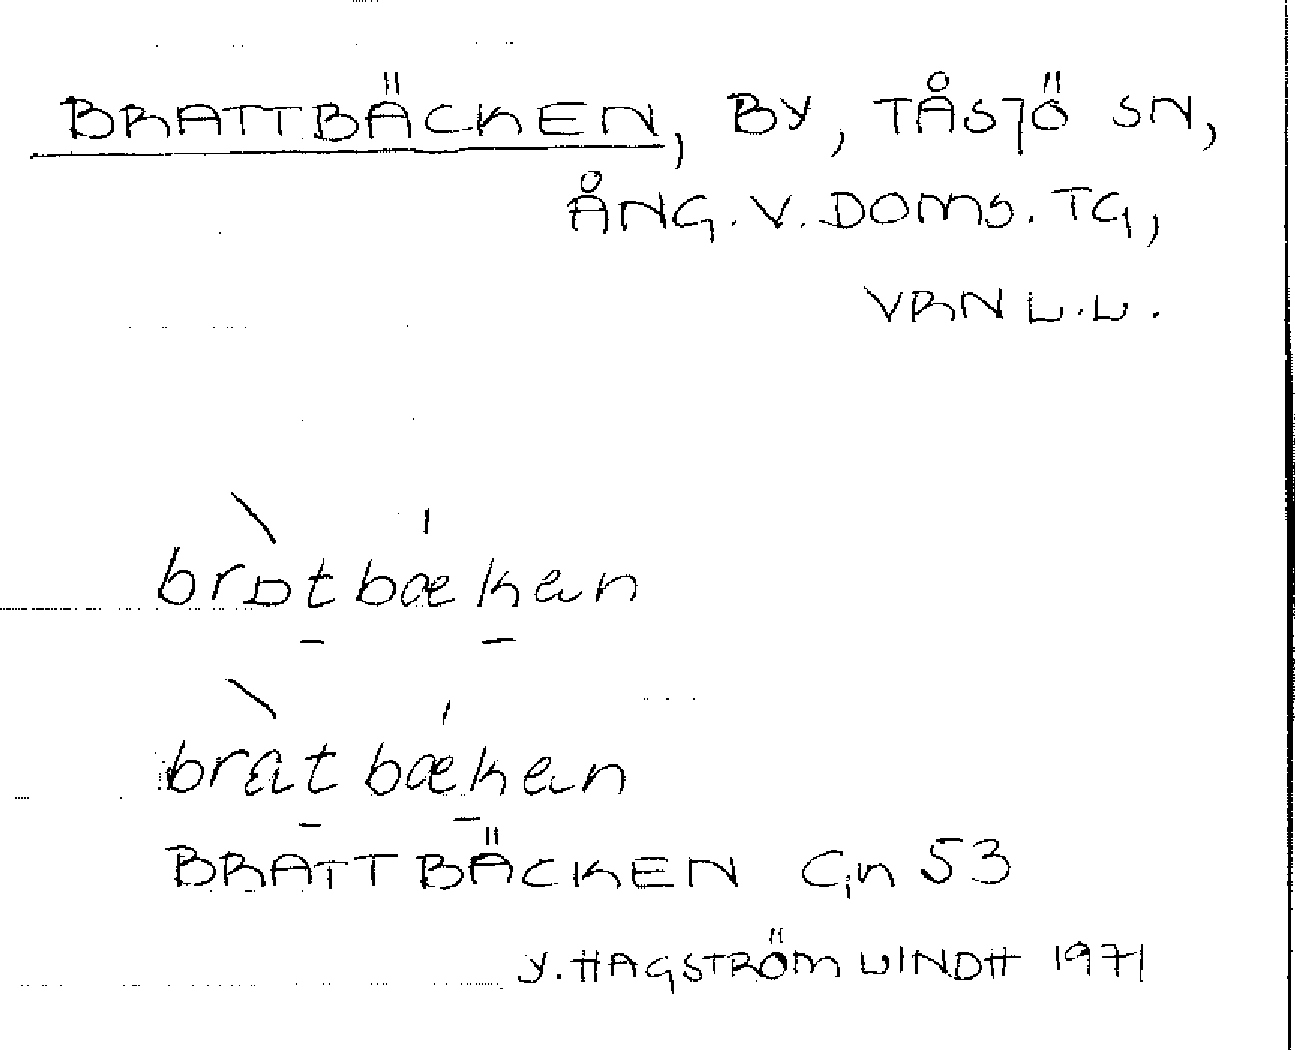 BRATTBÄCKEN, BY, TÅSJÖ SN,
ÅNG. V. DOMS. TG,
VRN L.L.
bratbækən
bratbækən
BRATTBÄCKEN Gn 53
Y. HAGSTRÖM WINDH 1971